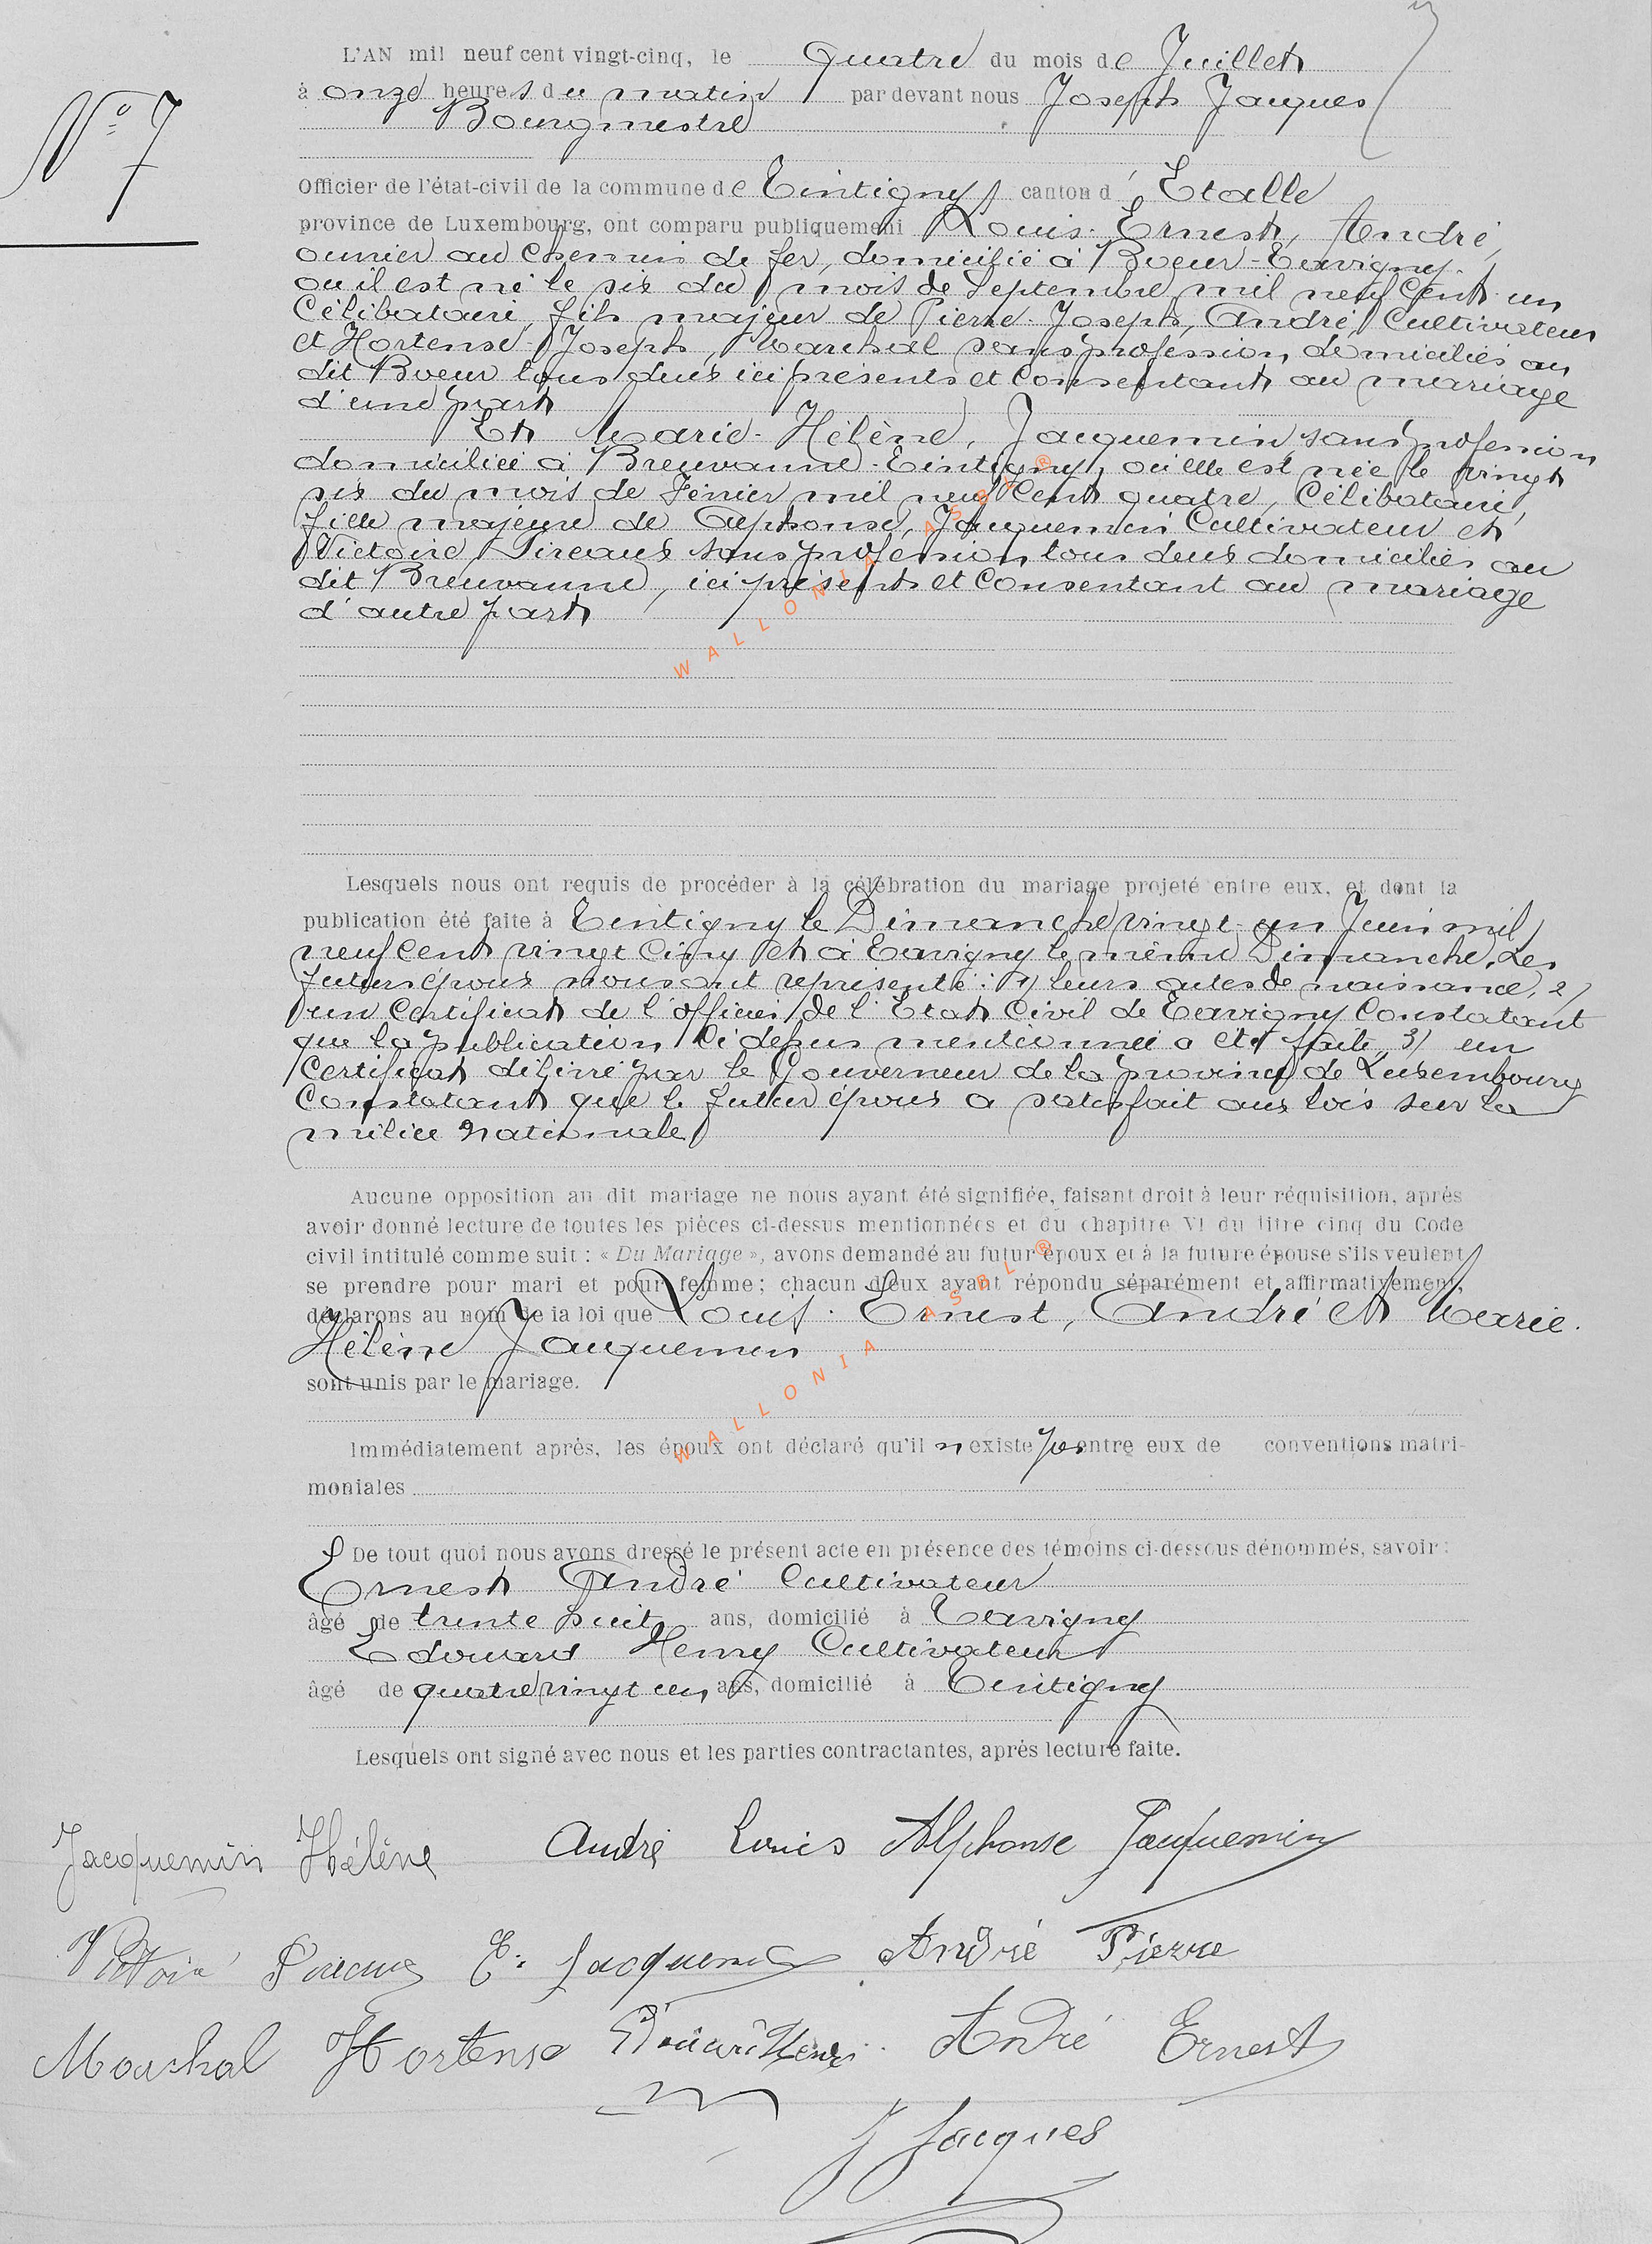 N° 7
L'AN mil neuf cent vingt-cinq, le Quatre du mois de Juillet
à onze heures du matin par devant nous Joseph Jacques
Bourgmestre
Officier de l'état-civil de la commune de Tintigny canton d'Etalle
province de Luxembourg, ont comparu publiquement Louis-Ernest, André,
ouvrier au chemin de fer, domicilié à Boeur-Tavigny
où il est né le six du mois de Septembre mil neuf Cent un
Célibataire, fils majeur de Pierre-Joseph, André, Cultivateur
et Hortense-Joseph, Marchal sans profession, domiciliés au
dit Boeur tous deux ici présents et Consentant au mariage
d'une part
Et Marie-Hélène, Jacquemin sans profession
domiciliée à Breuvanne-Tintigny, où elle est née le vingt
six du mois de Février mil neuf Cent quatre, Célibataire,
fille majeure de Alphonse, Jacquemin Cultivateur et
Victoire Pireaux sans profession tous deux domiciliés au
dit Breuvanne, ici présents et Consentant au mariage
d'autre part
WALLONIA ASBL ®
Lesquels nous ont requis de procéder à la célébration du mariage projeté entre eux, et dont la
publication été faite à Tintigny le Dimanche vingt-un Juin mil
neuf cent vingt Cinq et à Tavigny le même Dimanche. Les
futurs époux nous ont représenté: 1) leurs actes de naissance, 2)
un Certificat de l'officier de l'Etat Civil de Tavigny Constatant
que la publication Ci depus mentionnée a été faite, 3) un
Certificat délivré par le Gouverneur de la province de Luxembourg
Constatant que le futur époux a satisfait aux lois sur la
milice nationale
Aucune opposition au dit mariage ne nous ayant été signifiée, faisant droit à leur réquisition, après
avoir donné lecture de toutes les pièces ci-dessus mentionnées et du chapitre VI du titre cinq du Code
civil intitulé comme suit : « Du Mariage », avons demandé au futur époux et à la future épouse s'ils veulent
se prendre pour mari et pour femme; chacun d'eux ayant répondu séparément et affirmativement,
déclarons au nom de la loi que Louis-Ernest, André et Marie-
Hélène Jacquemin
sont unis par le mariage.
WALLONIA ASBL ®
Immédiatement après, les époux ont déclaré qu'il n'existe pas entre eux de conventions matri-
moniales
De tout quoi nous avons dressé le présent acte en présence des témoins ci-dessous dénommés, savoir :
Ernest André Cultivateur
âgé de trente huit ans, domicilié à Tavigny
Edouard Henry Cultivateur
âgé de quatre vingt un ans, domicilié à Tintigny
Lesquels ont signé avec nous et les parties contractantes, après lecture faite.
Jacquemin Hélène André Louis Alphonse Jacquemin
Victoire Pireaux E. Jacquemin André Pierre
Marchal Hortense Edouard Henry André Ernest
J Jacques